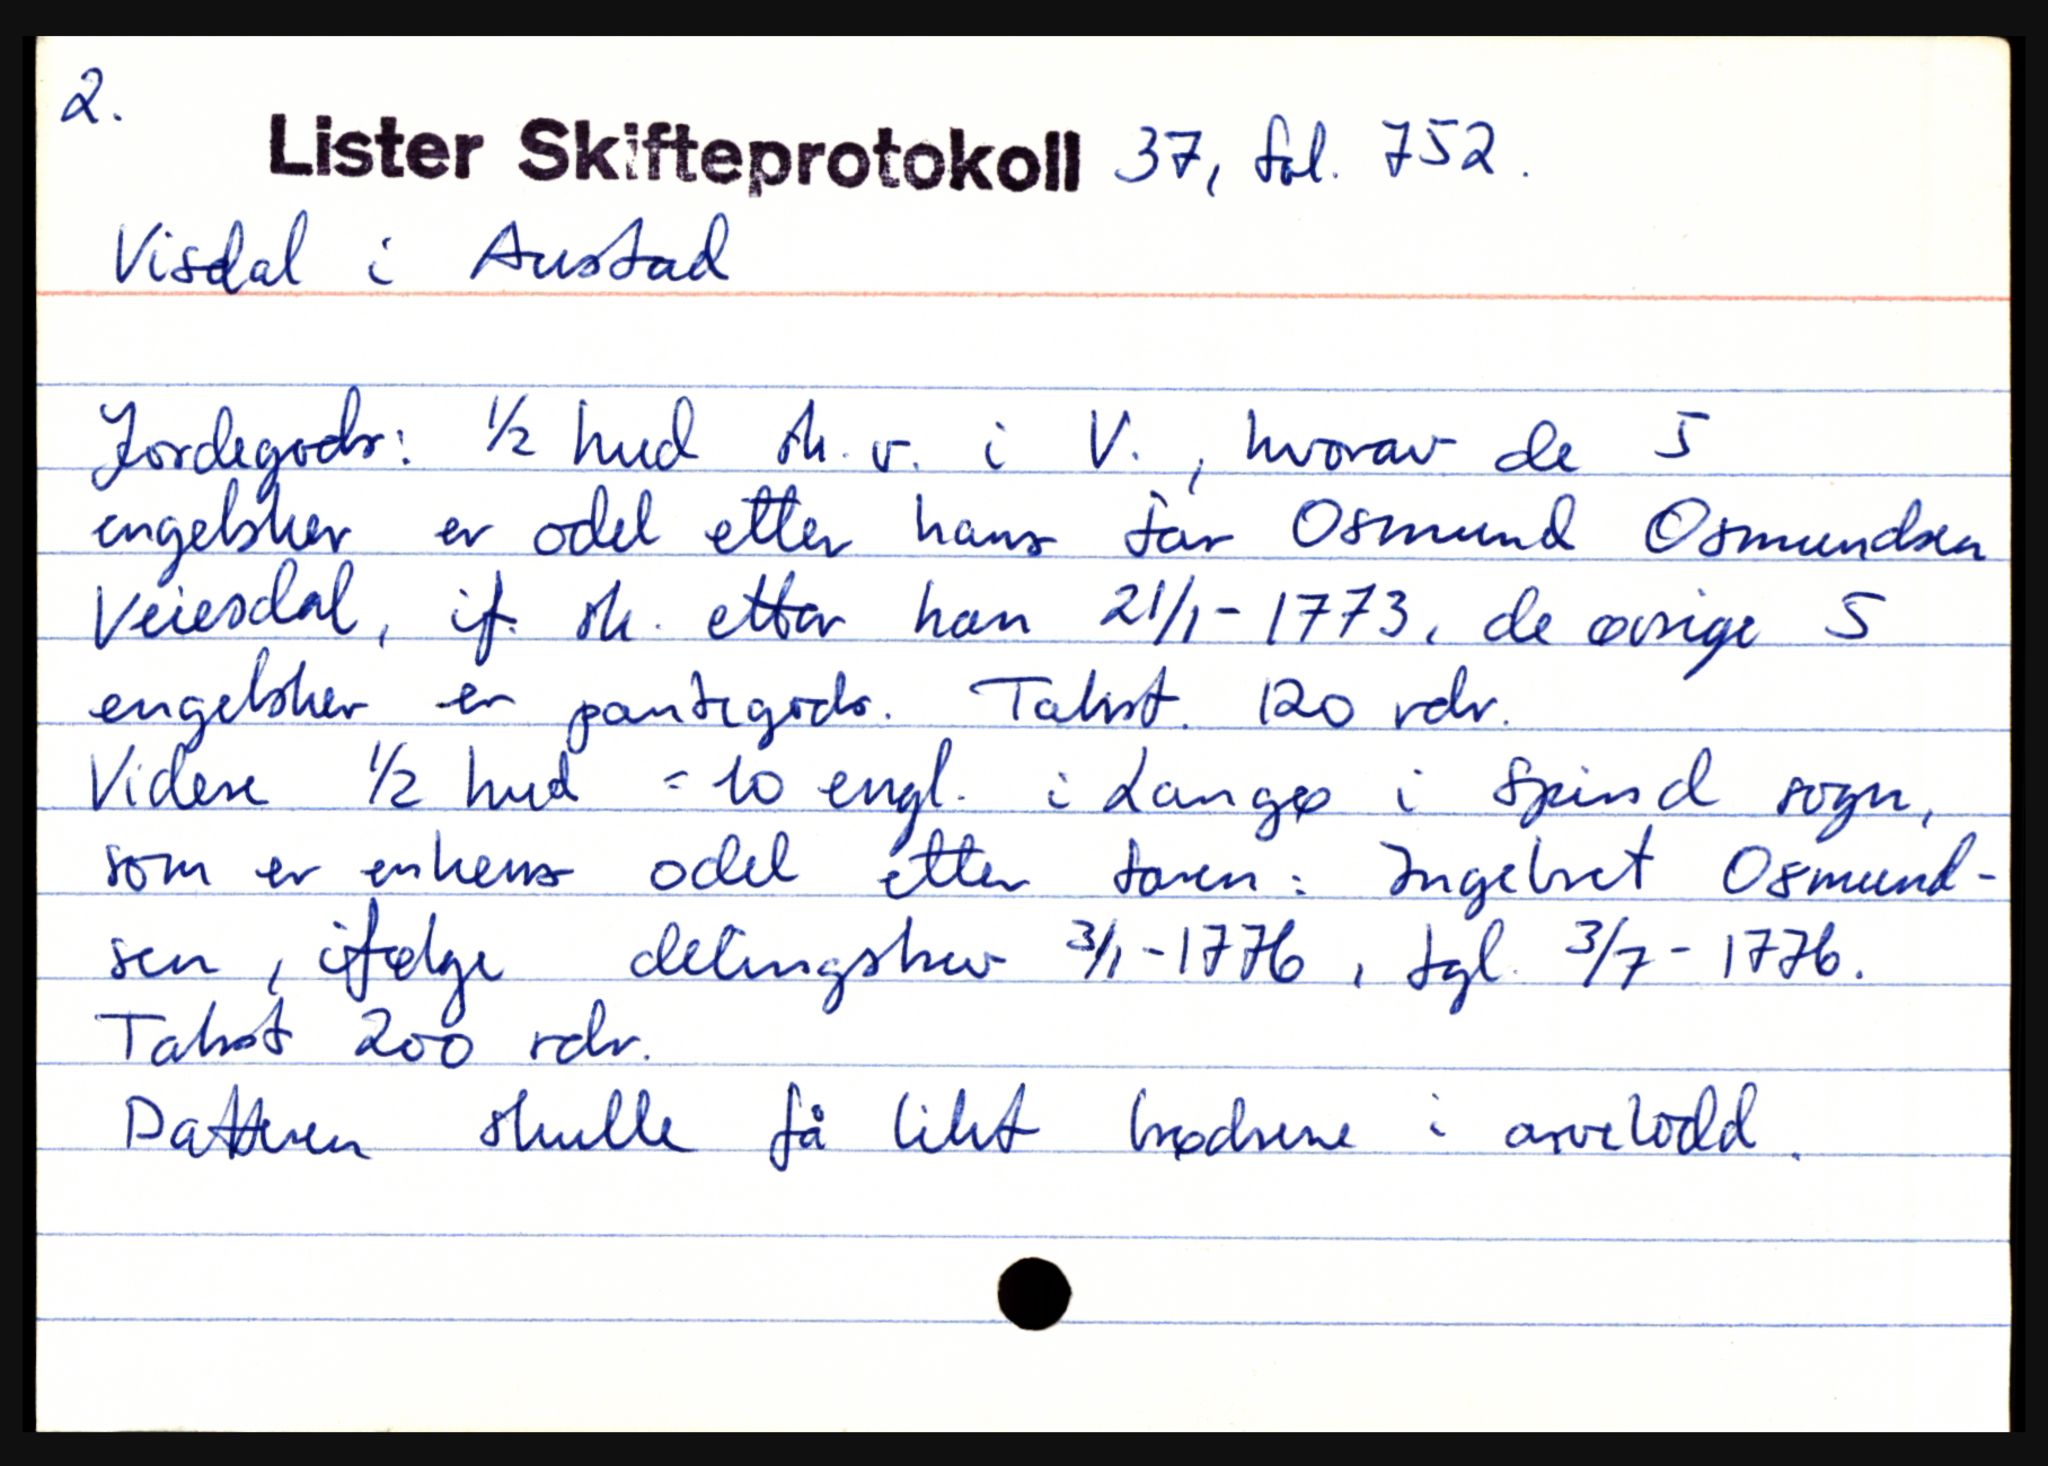 2.
Lister Skifteprotokoll 37, fol. 752.
Visdal i Austad
Jordegods: 1/2 hud sk. v. i V., hvorav de 5
engelsker er odel etter hans far Osmund Osmundsen
Veiesdal, if. sk. etter han 21/1-1773, de øvrige 5
engelsker er pantegods. Takst. 120 rdr.
Videre 1/2 hud = 10 engl. i Langø i Spind sogn,
som er enkens odel etter faren: Ingebret Osmund-
sen, ifølge delingsbrev 3/1-1776, tgl. 3/7-1776.
Takst 200 rdr.
Datteren skulle få likt brødrene i arvelodd.